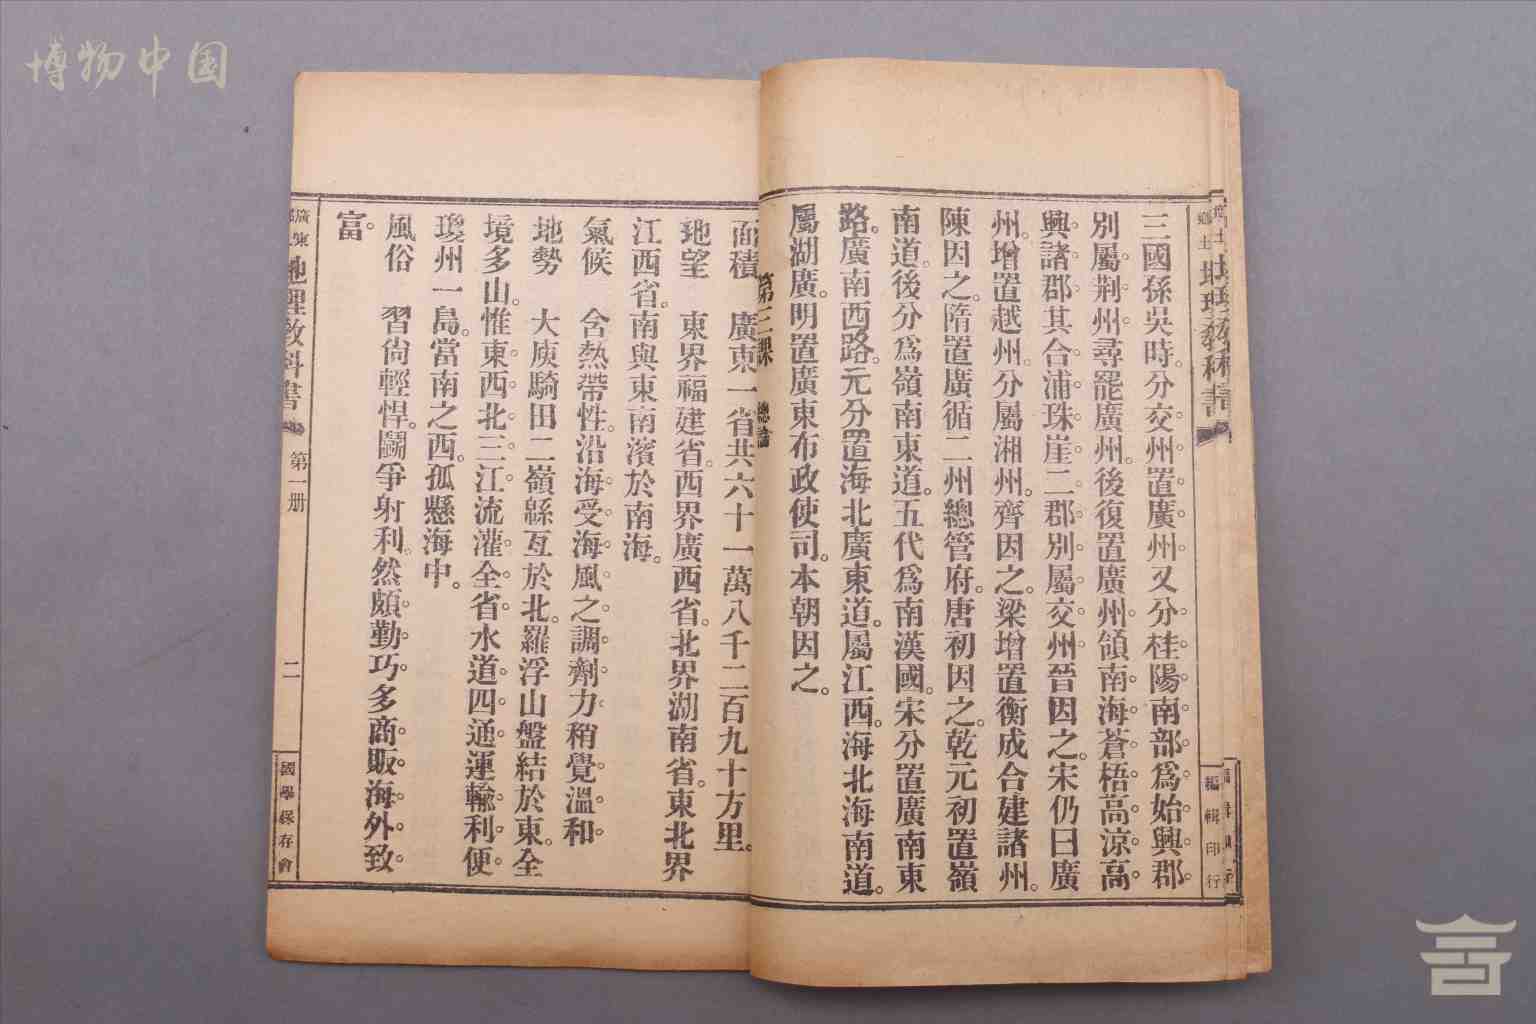 博物中国
三國孫吳時。分交州置廣州。又分桂陽南部爲始興郡。
別屬荆州。尋罷廣州。後復置廣州。領南海蒼梧高凉高
興諸郡。其合浦珠崖二郡。別屬交州。晉因之。宋仍曰廣
州。增置越州。分屬湘州。齊因之。梁增置衡成合建諸州。
陳因之。隋置廣循二州總管府。唐初因之。乾元初置嶺
南道。後分爲嶺南東道。五代爲南漢國。宋分置廣南東
路。廣南西路。元分置海北廣東道。屬江西。海北海南道。
屬湖廣。明置廣東布政使司。本朝因之。
第三課 總論
面積 廣東一省共六十一萬八千二百九十方里。
地望 東界福建省。西界廣西省。北界湖南省。東北界
江西省。南與東南濱於南海。
氣候 含熱帶性。沿海受海風之調劑力。稍覺溫和。
地勢 大庾騎田二嶺緜亙於北。羅浮山盤結於東。全
境多山。惟東西北三江流灌全省。水道四通。運輸利便。
瓊州一島。當南之西。孤懸海中。
風俗 習尙輕悍。鬭爭射利。然頗勤巧。多商販海外致
富。
地理教科書 第一册 二 國學保存會
編輯印行